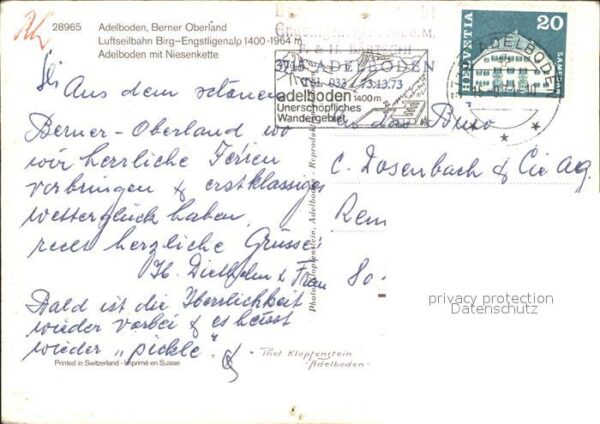 28965 Adelboden, Berner Oberland
Luftseilbahn Birg–Engstligenalp 1400-1964 m
Adelboden mit Niesenkette
3715 ADELBODEN
Tel. 033 / 73.13.73
adelboden 1400 m
Unerschöpfliches
Wandergebiet
ADELBODEN
HELVETIA
20
Aus dem schönen
Berner-Oberland wo
wir herrliche Ferien
verbringen & erstklassiges
Wetterglück haben,
recht herzliche Grüsse
H. Diethelm & Frau
Bald ist die Herrlichkeit
wieder vorbei & es heisst
wieder „pickle".
An das Büro
C. Dosenbach & Cie AG.
Ren
80
privacy protection
Datenschutz
Phot. Klopfenstein
"Adelboden"
Photo Klopfenstein, Adelboden - Reproduktion
Printed in Switzerland - Imprimé en Suisse